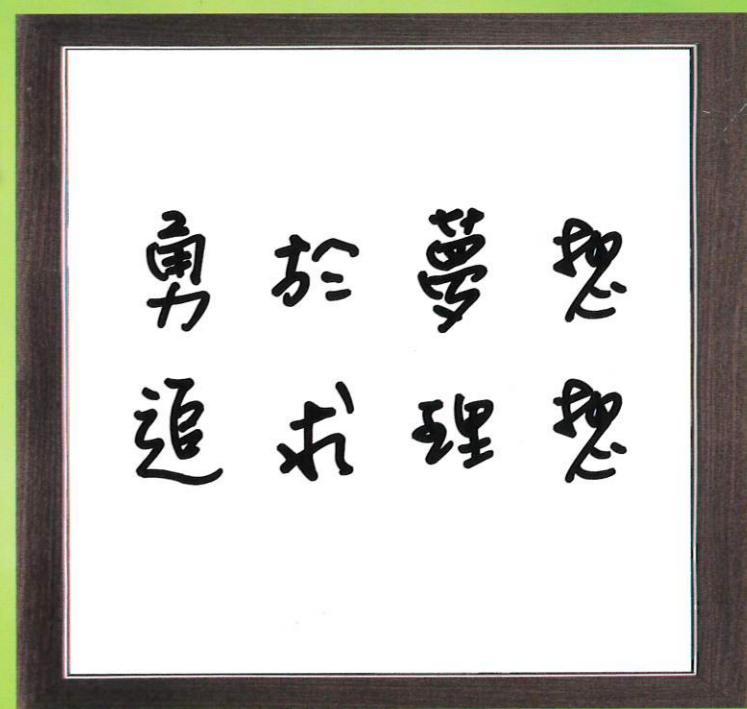 勇於夢想
追求理想